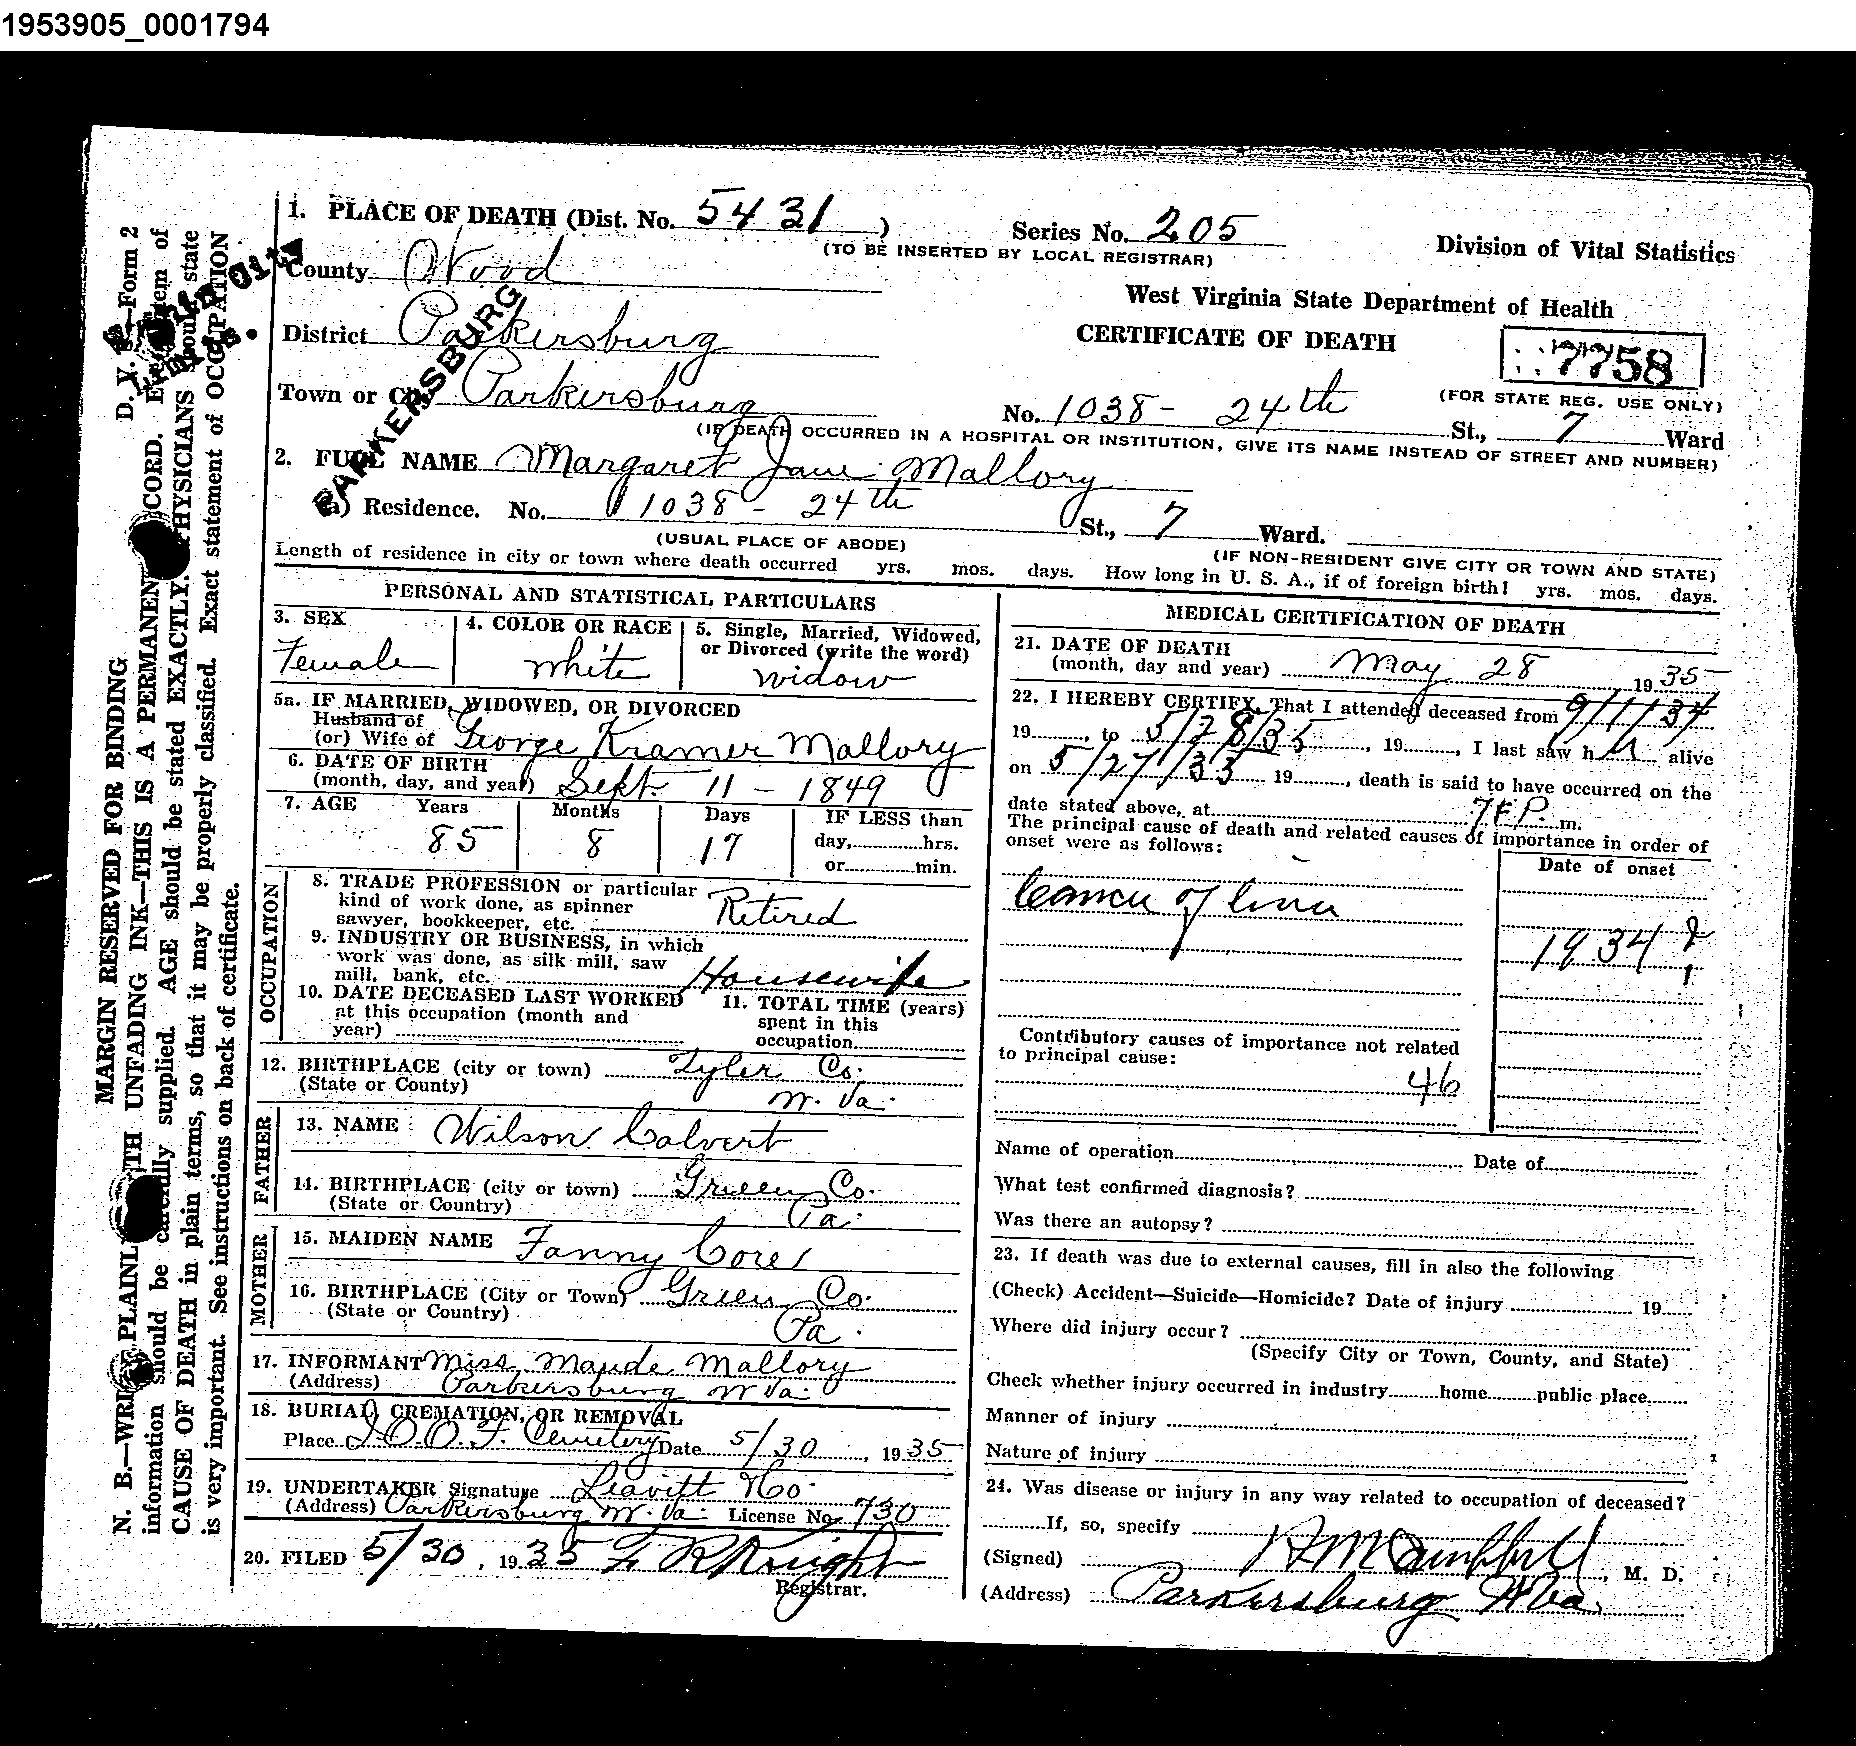 1953905_0001794
1. PLACE OF DEATH (Dist. No. 5431 )
Series No. 205
(TO BE INSERTED BY LOCAL REGISTRAR)
Division of Vital Statistics
County Wood
West Virginia State Department of Health
District Parkersburg
CERTIFICATE OF DEATH
7758
(FOR STATE REG. USE ONLY)
PARKERSBURG
Town or City Parkersburg
No. 1038 - 24th St., 7 Ward
(IF DEATH OCCURRED IN A HOSPITAL OR INSTITUTION, GIVE ITS NAME INSTEAD OF STREET AND NUMBER)
2. FULL NAME Margaret Jane Mallory
(a) Residence. No. 1038 - 24th St., 7 Ward.
(USUAL PLACE OF ABODE)
(IF NON-RESIDENT GIVE CITY OR TOWN AND STATE)
Length of residence in city or town where death occurred yrs. mos. days. How long in U. S. A., if of foreign birth? yrs. mos. days.
PERSONAL AND STATISTICAL PARTICULARS
3. SEX
Female
4. COLOR OR RACE
White
5. Single, Married, Widowed,
or Divorced (write the word)
Widow
5a. IF MARRIED, WIDOWED, OR DIVORCED
Husband of
(or) Wife of George Kramer Mallory
6. DATE OF BIRTH
(month, day, and year) Sept. 11 - 1849
7. AGE Years Months Days IF LESS than
85 8 17 day, hrs.
or min.
OCCUPATION
8. TRADE PROFESSION or particular
kind of work done, as spinner
sawyer, bookkeeper, etc. Retired
9. INDUSTRY OR BUSINESS, in which
work was done, as silk mill, saw
mill, bank, etc. Housewife
10. DATE DECEASED LAST WORKED
at this occupation (month and
year)
11. TOTAL TIME (years)
spent in this
occupation
12. BIRTHPLACE (city or town) Tyler Co.
(State or County) W. Va.
FATHER
13. NAME Wilson Calvert
14. BIRTHPLACE (city or town) Green Co.
(State or Country) Pa.
MOTHER
15. MAIDEN NAME Fanny
16. BIRTHPLACE (City or Town) Green Co.
(State or Country) Pa.
17. INFORMANT Miss Maude Mallory
(Address) Parkersburg W Va.
18. BURIAL, CREMATION, OR REMOVAL
Place I.O.O.F. Cemetery Date 5/30, 1935
19. UNDERTAKER Signature Leavitt
(Address) Parkersburg W. Va. License No. 730
20. FILED 5/30, 1935 F R Knight
Registrar.
MEDICAL CERTIFICATION OF DEATH
21. DATE OF DEATH
(month, day and year) May 28 1935
22. I HEREBY CERTIFY, That I attended deceased from 9/1/34
19 , to 5/28/35 , 19 , I last saw h alive
on 5/27/ 19 , death is said to have occurred on the
date stated above, at P. m.
The principal cause of death and related causes of importance in order of
onset were as follows:
Date of onset
Cancer of liver
1934 ?
Contributory causes of importance not related
to principal cause:
46
Name of operation Date of
What test confirmed diagnosis?
Was there an autopsy?
23. If death was due to external causes, fill in also the following
(Check) Accident—Suicide—Homicide? Date of injury 19
Where did injury occur?
(Specify City or Town, County, and State)
Check whether injury occurred in industry home public place
Manner of injury
Nature of injury
24. Was disease or injury in any way related to occupation of deceased?
If, so, specify
(Signed) Campbell, M. D.
(Address) Parkersburg W Va.
D. V. Form 2
MARGIN RESERVED FOR BINDING
N. B.—WRITE PLAINLY WITH UNFADING INK—THIS IS A PERMANENT RECORD. Every item of
information should be carefully supplied. AGE should be stated EXACTLY. PHYSICIANS should state
CAUSE OF DEATH in plain terms, so that it may be properly classified. Exact statement of OCCUPATION
is very important. See instructions on back of certificate.